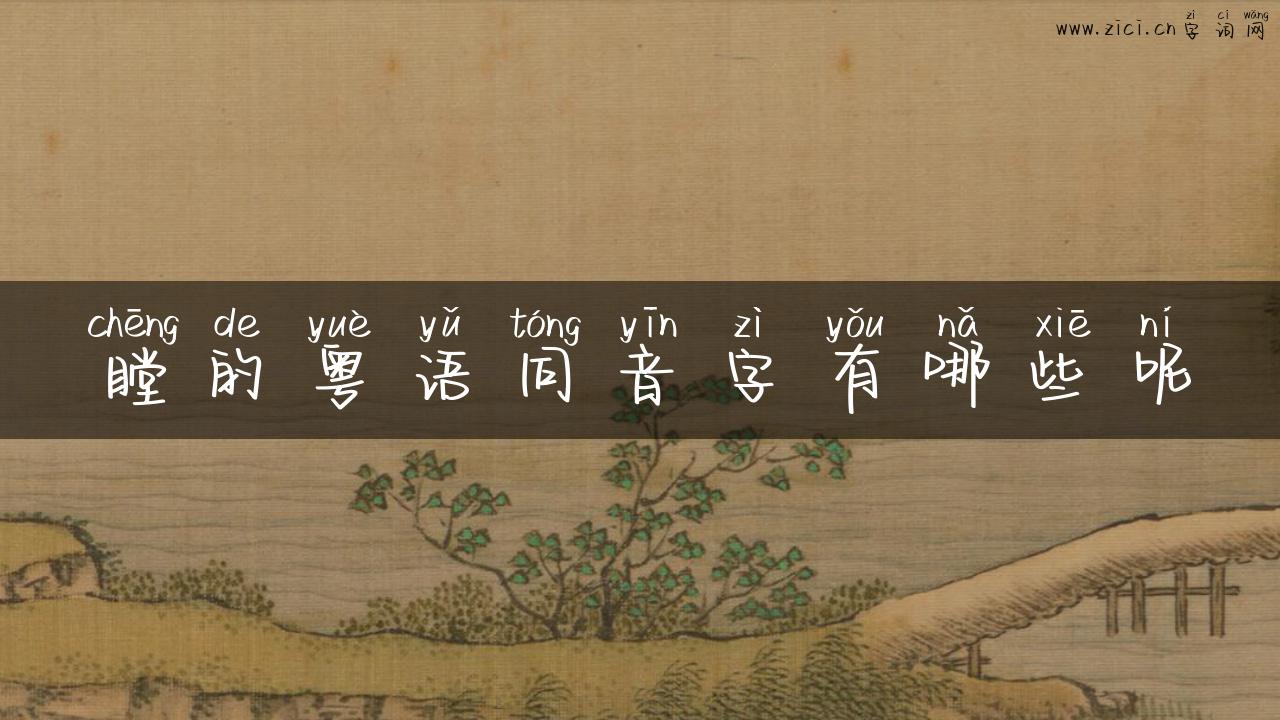 zì cí wǎng
www.zici.cn 字词网
chēng de yuè yǔ tóng yīn zì yǒu nǎ xiē ní
瞠的粤语同音字有哪些呢